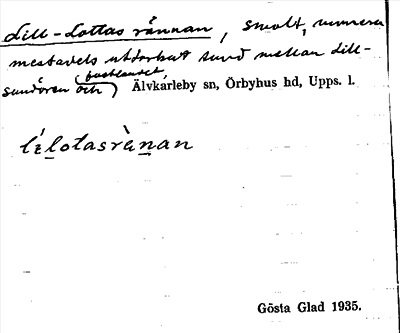 Lill-Lottas rännan, smalt, numera
mestadels uttorkat sund mellan Lill-
fastlandet,
sundören och Älvkarleby sn, Örbyhus hd, Upps. l.
lílotasrànan
Gösta Glad 1935.